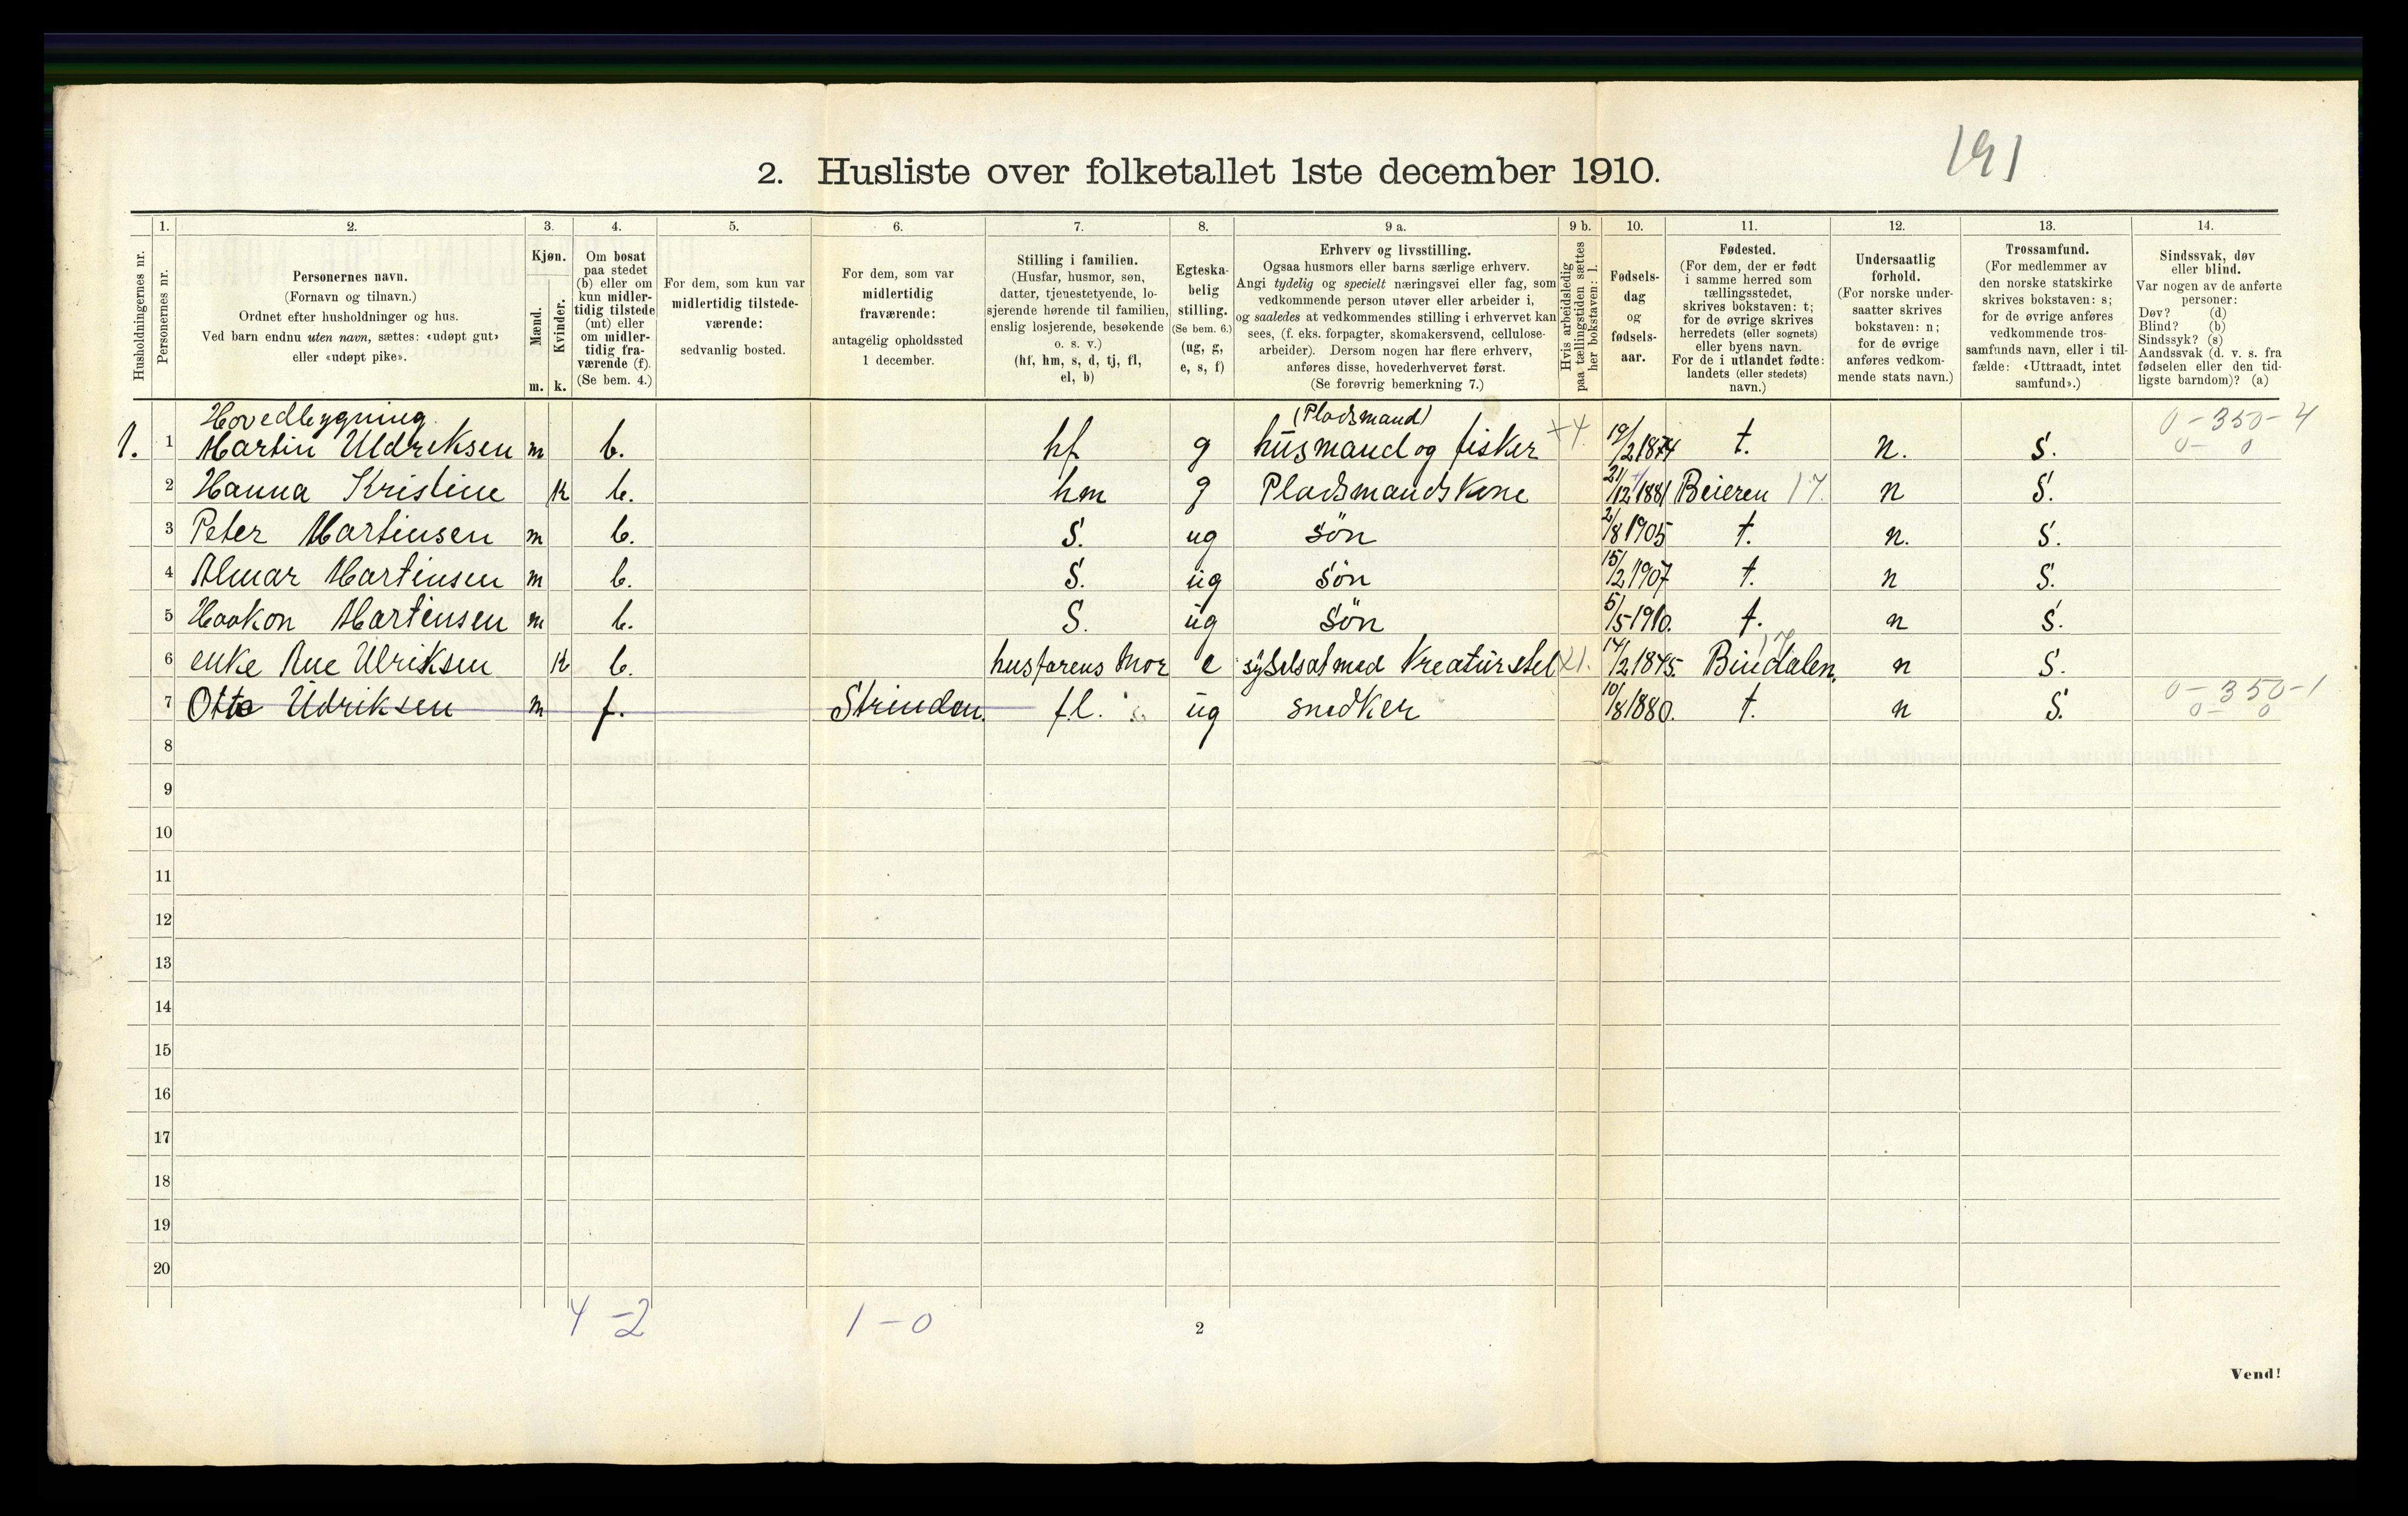 191
2. Husliste over folketallet 1ste december 1910.
Husholdningernes nr.
1.
Personernes nr.
2.
Personernes navn.
(Fornavn og tilnavn.)
Ordnet efter husholdninger og hus.
Ved barn endnu uten navn, sættes: «udøpt gut»
eller «udøpt pike».
3.
Kjøn.
Mænd.
Kvinder.
m. k.
4.
Om bosat
paa stedet
(b) eller om
kun midler-
tidig tilstede
(mt) eller
om midler-
tidig fra-
værende (f).
(Se bem. 4.)
5.
For dem, som kun var
midlertidig tilstede-
værende:
sedvanlig bosted.
6.
For dem, som var
midlertidig
fraværende:
antagelig opholdssted
1 december.
7.
Stilling i familien.
(Husfar, husmor, søn,
datter, tjenestetyende, lo-
sjerende hørende til familien,
enslig losjerende, besøkende
o. s. v.)
(hf, hm, s, d, tj, fl,
el, b)
8.
Egteska-
belig
stilling.
(Se bem. 6.)
(ug, g,
e, s, f)
9 a.
Erhverv og livsstilling.
Ogsaa husmors eller barns særlige erhverv.
Angi tydelig og specielt næringsvei eller fag, som
vedkommende person utøver eller arbeider i,
og saaledes at vedkommendes stilling i erhvervet kan
sees, (f. eks. forpagter, skomakersvend, cellulose-
arbeider). Dersom nogen har flere erhverv,
anføres disse, hovederhvervet først.
(Se forøvrig bemerkning 7.)
9 b.
Hvis arbeidsledig
paa tællingstiden sættes
her bokstaven: l.
10.
Fødsels-
dag
og
fødsels-
aar.
11.
Fødested.
(For dem, der er født
i samme herred som
tællingsstedet,
skrives bokstaven: t;
for de øvrige skrives
herredets (eller sognets)
eller byens navn.
For de i utlandet fødte:
landets (eller stedets)
navn.)
12.
Undersaatlig
forhold.
(For norske under-
saatter skrives
bokstaven: n;
for de øvrige
anføres vedkom-
mende stats navn.)
13.
Trossamfund.
(For medlemmer av
den norske statskirke
skrives bokstaven: s;
for de øvrige anføres
vedkommende tros-
samfunds navn, eller i til-
fælde: «Uttraadt, intet
samfund».)
14.
Sindssvak, døv
eller blind.
Var nogen av de anførte
personer:
Døv? (d)
Blind? (b)
Sindssyk? (s)
Aandssvak (d. v. s. fra
fødselen eller den tid-
ligste barndom)? (a)
Hovedbygning (Pladsmand) 0-350-4
1. 1 Martin Uldreksen m b. hf g husmand og fisker 19/2 1874 t. n. S. 0- 0
2 Hanna Kristine k b. hm g Pladsmandskone 21/12 1881 Beieren 17. n S.
3 Peter Martinsen m b. S. ug søn 2/8 1905 t. n. S.
4 Almar Martinsen m b. S. ug søn 15/2 1907 t. n S.
5 Haakon Martinsen m b. S. ug søn 5/5-1910. t. n S.
6 enke Ane Ulriksen k b. husfarens Mor e syselsat med Kreaturstel 14/2 1845. Bindalen. 17 n S.
7 Otto Udriksen m f. Strinden. fl. s. ug snedker 10/8 1880. t. n S. 0-350-1
0- 0
8
9
10
11
12
13
14
15
16
17
18
19
20
4-2 1-0
2
Vend!